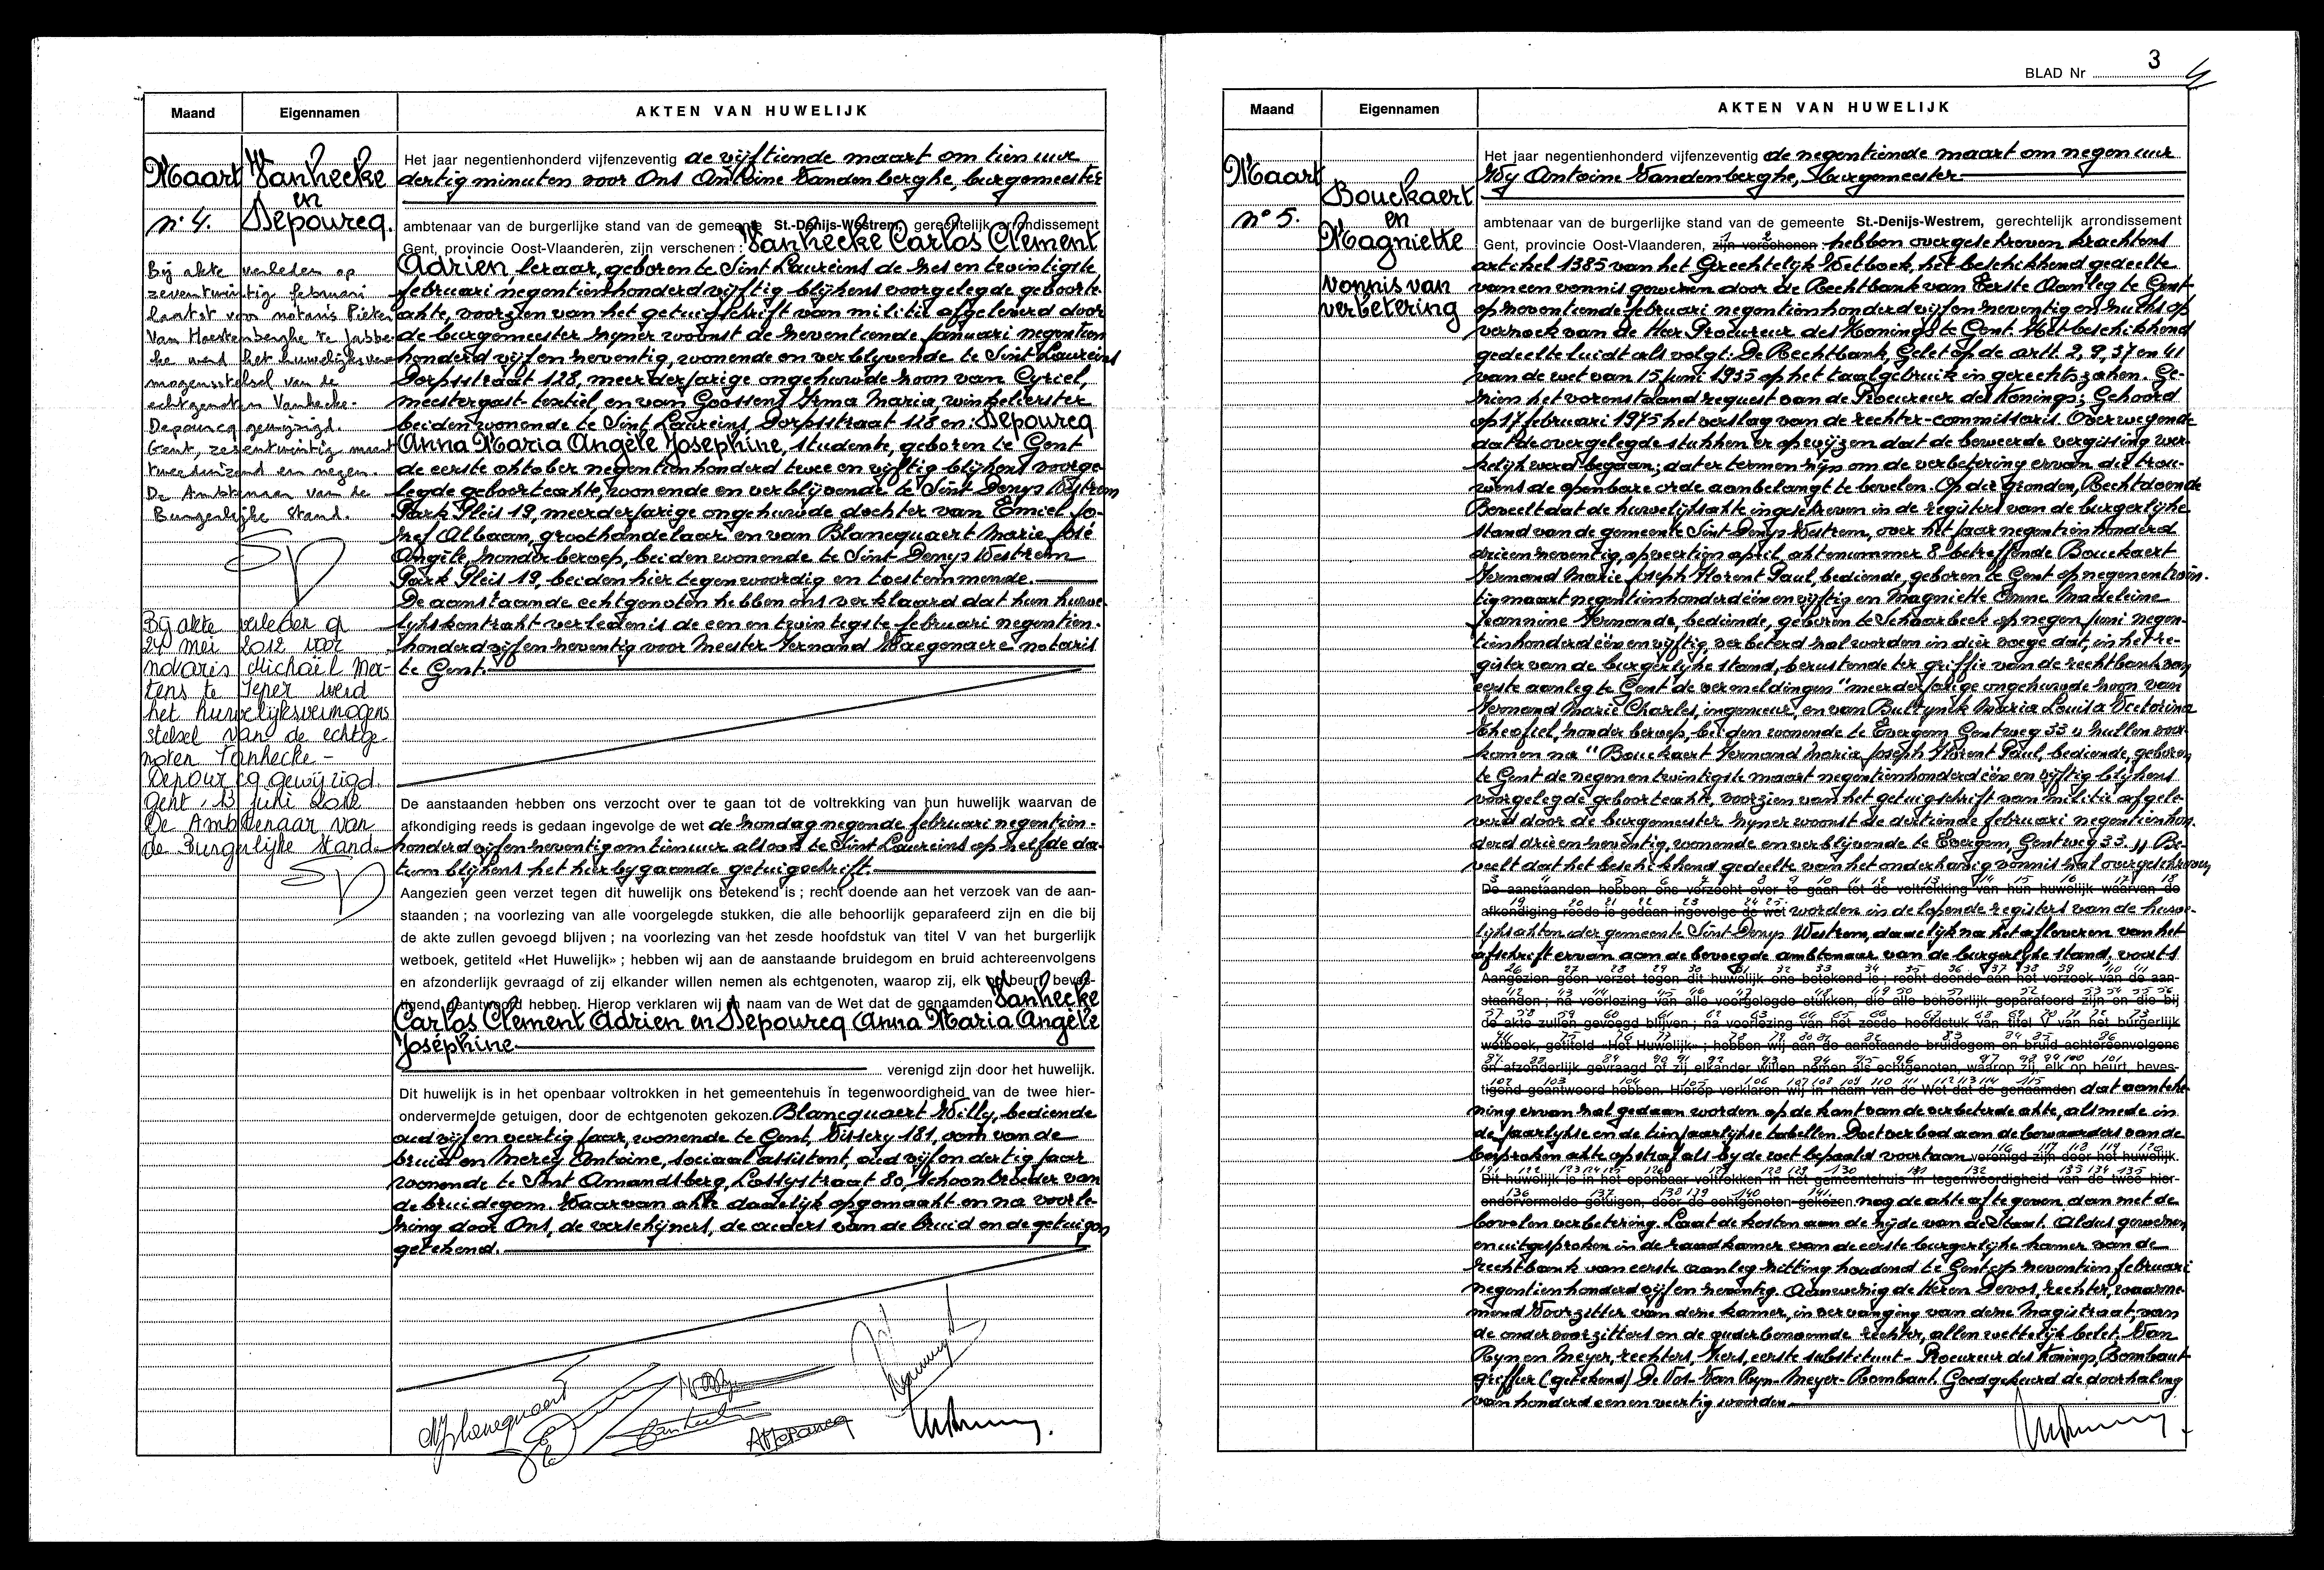 Maand Eigennamen AKTEN VAN HUWELIJK
Maart
n° 4.
Vanhecke
en
Depourcq.
Bij akte verleden op
zevenentwintig februari
laatst voor notaris Pieter
Van Hoestenberghe te Jabbe-
ke werd het huwelijksver-
mogensstelsel van de
echtgenoten Vanhecke-
Depourcq gewijzigd.
Gent, zesentwintig maart
tweeduizend en negen.
De Ambtenaar van de
Burgerlijke Stand.
Bij akte verleden op
24 mei 2012 voor
notaris Michaël Mer-
tens te Ieper werd
het huwelijksvermogens
stelsel van de echtge-
noten Vanhecke -
Depourcq gewijzigd.
Gent, 13 juni 2012
De Ambtenaar van
de Burgerlijke Stand
Het jaar negentienhonderd vijfenzeventig de vijftiende maart om tien uur
dertig minuten voor Ons Antoine Vandenberghe, burgemeester
ambtenaar van de burgerlijke stand van de gemeente St.-Denijs-Westrem, gerechtelijk arrondissement
Gent, provincie Oost-Vlaanderen, zijn verschenen : Vanhecke Carlos Clement
Adrien leraar, geboren te Sint Laureins de zes en twintigste
februari negentienhonderd vijftig blijkens voorgelegde geboorte-
akte, voorzien van het getuigschrift van militie afgeleverd door
de burgemeester zijner woonst de zeventiende januari negentien
honderd vijf en zeventig, wonende en verblijvende te Sint Laureins
Dorpsstraat 128, meerderjarige ongehuwde zoon van Cyriel,
meestergast-textiel en van Goossens Irma Maria winkelierster
beiden wonende te Sint Laureins, Dorpsstraat 128 en: Depourcq
Anna Maria Angèle Josephine, studente, geboren te Gent
de eerste oktober negentienhonderd twee en vijftig blijkens voorge-
legde geboorteakte, wonende en verblijvende te Sint Denys Westrem
Park Pleis 19, meerderjarige ongehuwde dochter van Emiel Jo-
zef Albaan, groothandelaar en van Blancquaert Marie José
Angèle, zonder beroep, beiden wonende te Sint Denys Westrem
Park Pleis 19, beiden hier tegenwoordig en toestemmende.
De aanstaande echtgenoten hebben ons verklaard dat hun huwe-
lijkskontrakt verleden is de een en twintigste februari negentien-
honderd vijf en zeventig voor Meester Fernand Waegenaere notaris
te Gent.
De aanstaanden hebben ons verzocht over te gaan tot de voltrekking van hun huwelijk waarvan de
afkondiging reeds is gedaan ingevolge de wet de zondag negende februari negentien-
honderd vijf en zeventig om tien uur alsook te Sint Laureins op zelfde da-
tum blijkens het hierbygaande getuigschrift.
Aangezien geen verzet tegen dit huwelijk ons betekend is ; recht doende aan het verzoek van de aan-
staanden ; na voorlezing van alle voorgelegde stukken, die alle behoorlijk geparafeerd zijn en die bij
de akte zullen gevoegd blijven ; na voorlezing van het zesde hoofdstuk van titel V van het burgerlijk
wetboek, getiteld «Het Huwelijk» ; hebben wij aan de aanstaande bruidegom en bruid achtereenvolgens
en afzonderlijk gevraagd of zij elkander willen nemen als echtgenoten, waarop zij, elk op beurt, beves-
tigend geantwoord hebben. Hierop verklaren wij in naam van de Wet dat de genaamden Vanhecke
Carlos Clement Adrien en Depourcq Anna Maria Angèle
Josephine
verenigd zijn door het huwelijk.
Dit huwelijk is in het openbaar voltrokken in het gemeentehuis in tegenwoordigheid van de twee hier-
ondervermelde getuigen, door de echtgenoten gekozen. Blancquaert Willy, bediende
oud vijf en veertig jaar, wonende te Gent, Visserij 181, oom van de
bruid en Mercy Antoine, sociaal assistent, oud vijf en dertig jaar
wonende te Sint Amandsberg, Lossystraat 80, schoonbroeder van
de bruidegom. Waarvan akte dadelijk opgemaakt en na voorle-
zing door Ons, de verschijners, de ouders van de bruid en de getuigen
getekend.
BLAD Nr 3
Maand Eigennamen AKTEN VAN HUWELIJK
Maart
n° 5.
Bouckaert
en
Magniette
vonnis van
verbetering
Het jaar negentienhonderd vijfenzeventig de negentiende maart om negen uur
Wy Antoine Vandenberghe, burgemeester
ambtenaar van de burgerlijke stand van de gemeente St.-Denijs-Westrem, gerechtelijk arrondissement
Gent, provincie Oost-Vlaanderen, zijn verschenen : hebben overgeschreven krachtens
artikel 1385 van het Gerechtelijk Wetboek, het beschikkend gedeelte
van een vonnis gewezen door de Rechtbank van Eerste Aanleg te Gent
op zeventiende februari negentienhonderd vijf en zeventig en zulks op
verzoek van de Heer Procureur des Konings te Gent. Het beschikkend
gedeelte luidt als volgt: De Rechtbank, Gelet op de artt. 2, 9, 37 en 41
van de wet van 15 juni 1935 op het taalgebruik in gerechtszaken. Ge-
zien het vorenstaand request van de Procureur des Konings; Gehoord
op 17 februari 1975 het verslag van de rechter-commissaris. Overwegende
dat de overgelegde stukken er op wijzen dat de beweerde vergissing wer-
kelijk werd begaan; dat er termen zijn om de verbetering ervan die trou-
wens de openbare orde aanbelangt te bevelen. Op die gronden, Rechtdoende
Beveelt dat de huwelijksakte ingeschreven in de registers van de burgerlijke
stand van de gemeente Sint Denys Westrem, over het jaar negentienhonderd
drieenzeventig, op veertien april, aktenummer 8 betreffende Bouckaert
Fernand Marie Joseph Florent Paul, bediende, geboren te Gent op negenentwin-
tig maart negentienhonderd één en vijftig en Magniette Emme Madeleine
Jeannine Fernande, bediende, geboren te Schaarbeek op negen juni negen-
tienhonderd één en vijftig, verbeterd zal worden in dier voege dat, in het re-
gister van de burgerlijke stand, berustende ter griffie van de rechtbank van
eerste aanleg te Gent de vermeldingen "meerderjarige ongehuwde zoon van
Fernand Marie Charles, ingenieur, en van Bultynck Maria Louisa Victorina
Theofiel, zonder beroep, beiden wonende te Evergem Gentweg 33" zullen voor-
komen na "Bouckaert Fernand Maria Joseph Florent Paul, bediende, geboren
te Gent de negen en twintigste maart negentienhonderd één en vijftig blijkens
voorgelegde geboorteakte, voorzien van het getuigschrift van militie afgele-
verd door de burgemeester zijner woonst de dertiende februari negentienhon-
derd drieenzeventig, wonende en verblijvende te Evergem, Gentweg 33." Be-
veelt dat het beschikkend gedeelte van het onderhavig vonnis zal overgeschreven
De aanstaanden hebben ons verzocht over te gaan tot de voltrekking van hun huwelijk waarvan de
afkondiging reeds is gedaan ingevolge de wet worden in de lopende registers van de huwe-
lijksakten der gemeente Sint Denys Westrem, dadelijk na het afleveren van het
afschrift ervan aan de bevoegde ambtenaar van de burgerlijke stand, voorts
Aangezien geen verzet tegen dit huwelijk ons betekend is ; recht doende aan het verzoek van de aan-
staanden ; na voorlezing van alle voorgelegde stukken, die alle behoorlijk geparafeerd zijn en die bij
de akte zullen gevoegd blijven ; na voorlezing van het zesde hoofdstuk van titel V van het burgerlijk
wetboek, getiteld «Het Huwelijk» ; hebben wij aan de aanstaande bruidegom en bruid achtereenvolgens
en afzonderlijk gevraagd of zij elkander willen nemen als echtgenoten, waarop zij, elk op beurt, beves-
tigend geantwoord hebben. Hierop verklaren wij in naam van de Wet dat de genaamden dat aanteke-
ning ervan zal gedaan worden op de kant van de verbeterde akte, alsmede in
de jaarlijkse en de tienjaarlijkse tabellen. Doet verbod aan de bewaarders van de
besproken akte op straf als bij de wet bepaald voortaan verenigd zijn door het huwelijk.
Dit huwelijk is in het openbaar voltrokken in het gemeentehuis in tegenwoordigheid van de twee hier-
ondervermelde getuigen, door de echtgenoten gekozen. nog de akte af te geven dan met de
bevolen verbetering. Laat de kosten aan de zijde van de Staat. Aldus gewezen
en uitgesproken in de raadkamer van de eerste burgerlijke kamer van de
rechtbank van eerste aanleg zitting houdend te Gent op zeventien februari
negentienhonderd vijf en zeventig. Aanwezig de Heren Devos, rechter, waarne-
mend Voorzitter van deze kamer, in vervanging van deze Magistraat, van
de ondervoorzitters en de ouderbenoemde rechter, allen wettelijk belet. Van
Ryn en Meyer, rechters, Kiers, eerste substituut - Procureur des Konings, Bombaut
griffier (getekend) De Vos - Van Ryn - Meyer - Bombaut. Goedgekeurd de doorhaling
van honderd een en veertig woorden.